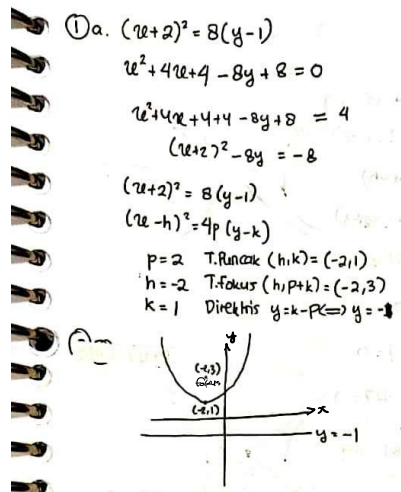 ① a. (x+2)² = 8(y-1)
x² + 4x+4 - 8y + 8 = 0
x²+4x+4+4 - 8y+8 = 4
(x+2)² - 8y = -8
(x+2)² = 8(y-1)
(x-h)² = 4p (y-k)
p = 2 T.Puncak (h,k) = (-2,1)
h = -2 T.fokus (h, p+k) = (-2,3)
k = 1 Direktris y = k-p <=> y = -1
y
(-2,3)
(-2,1)
x
y = -1